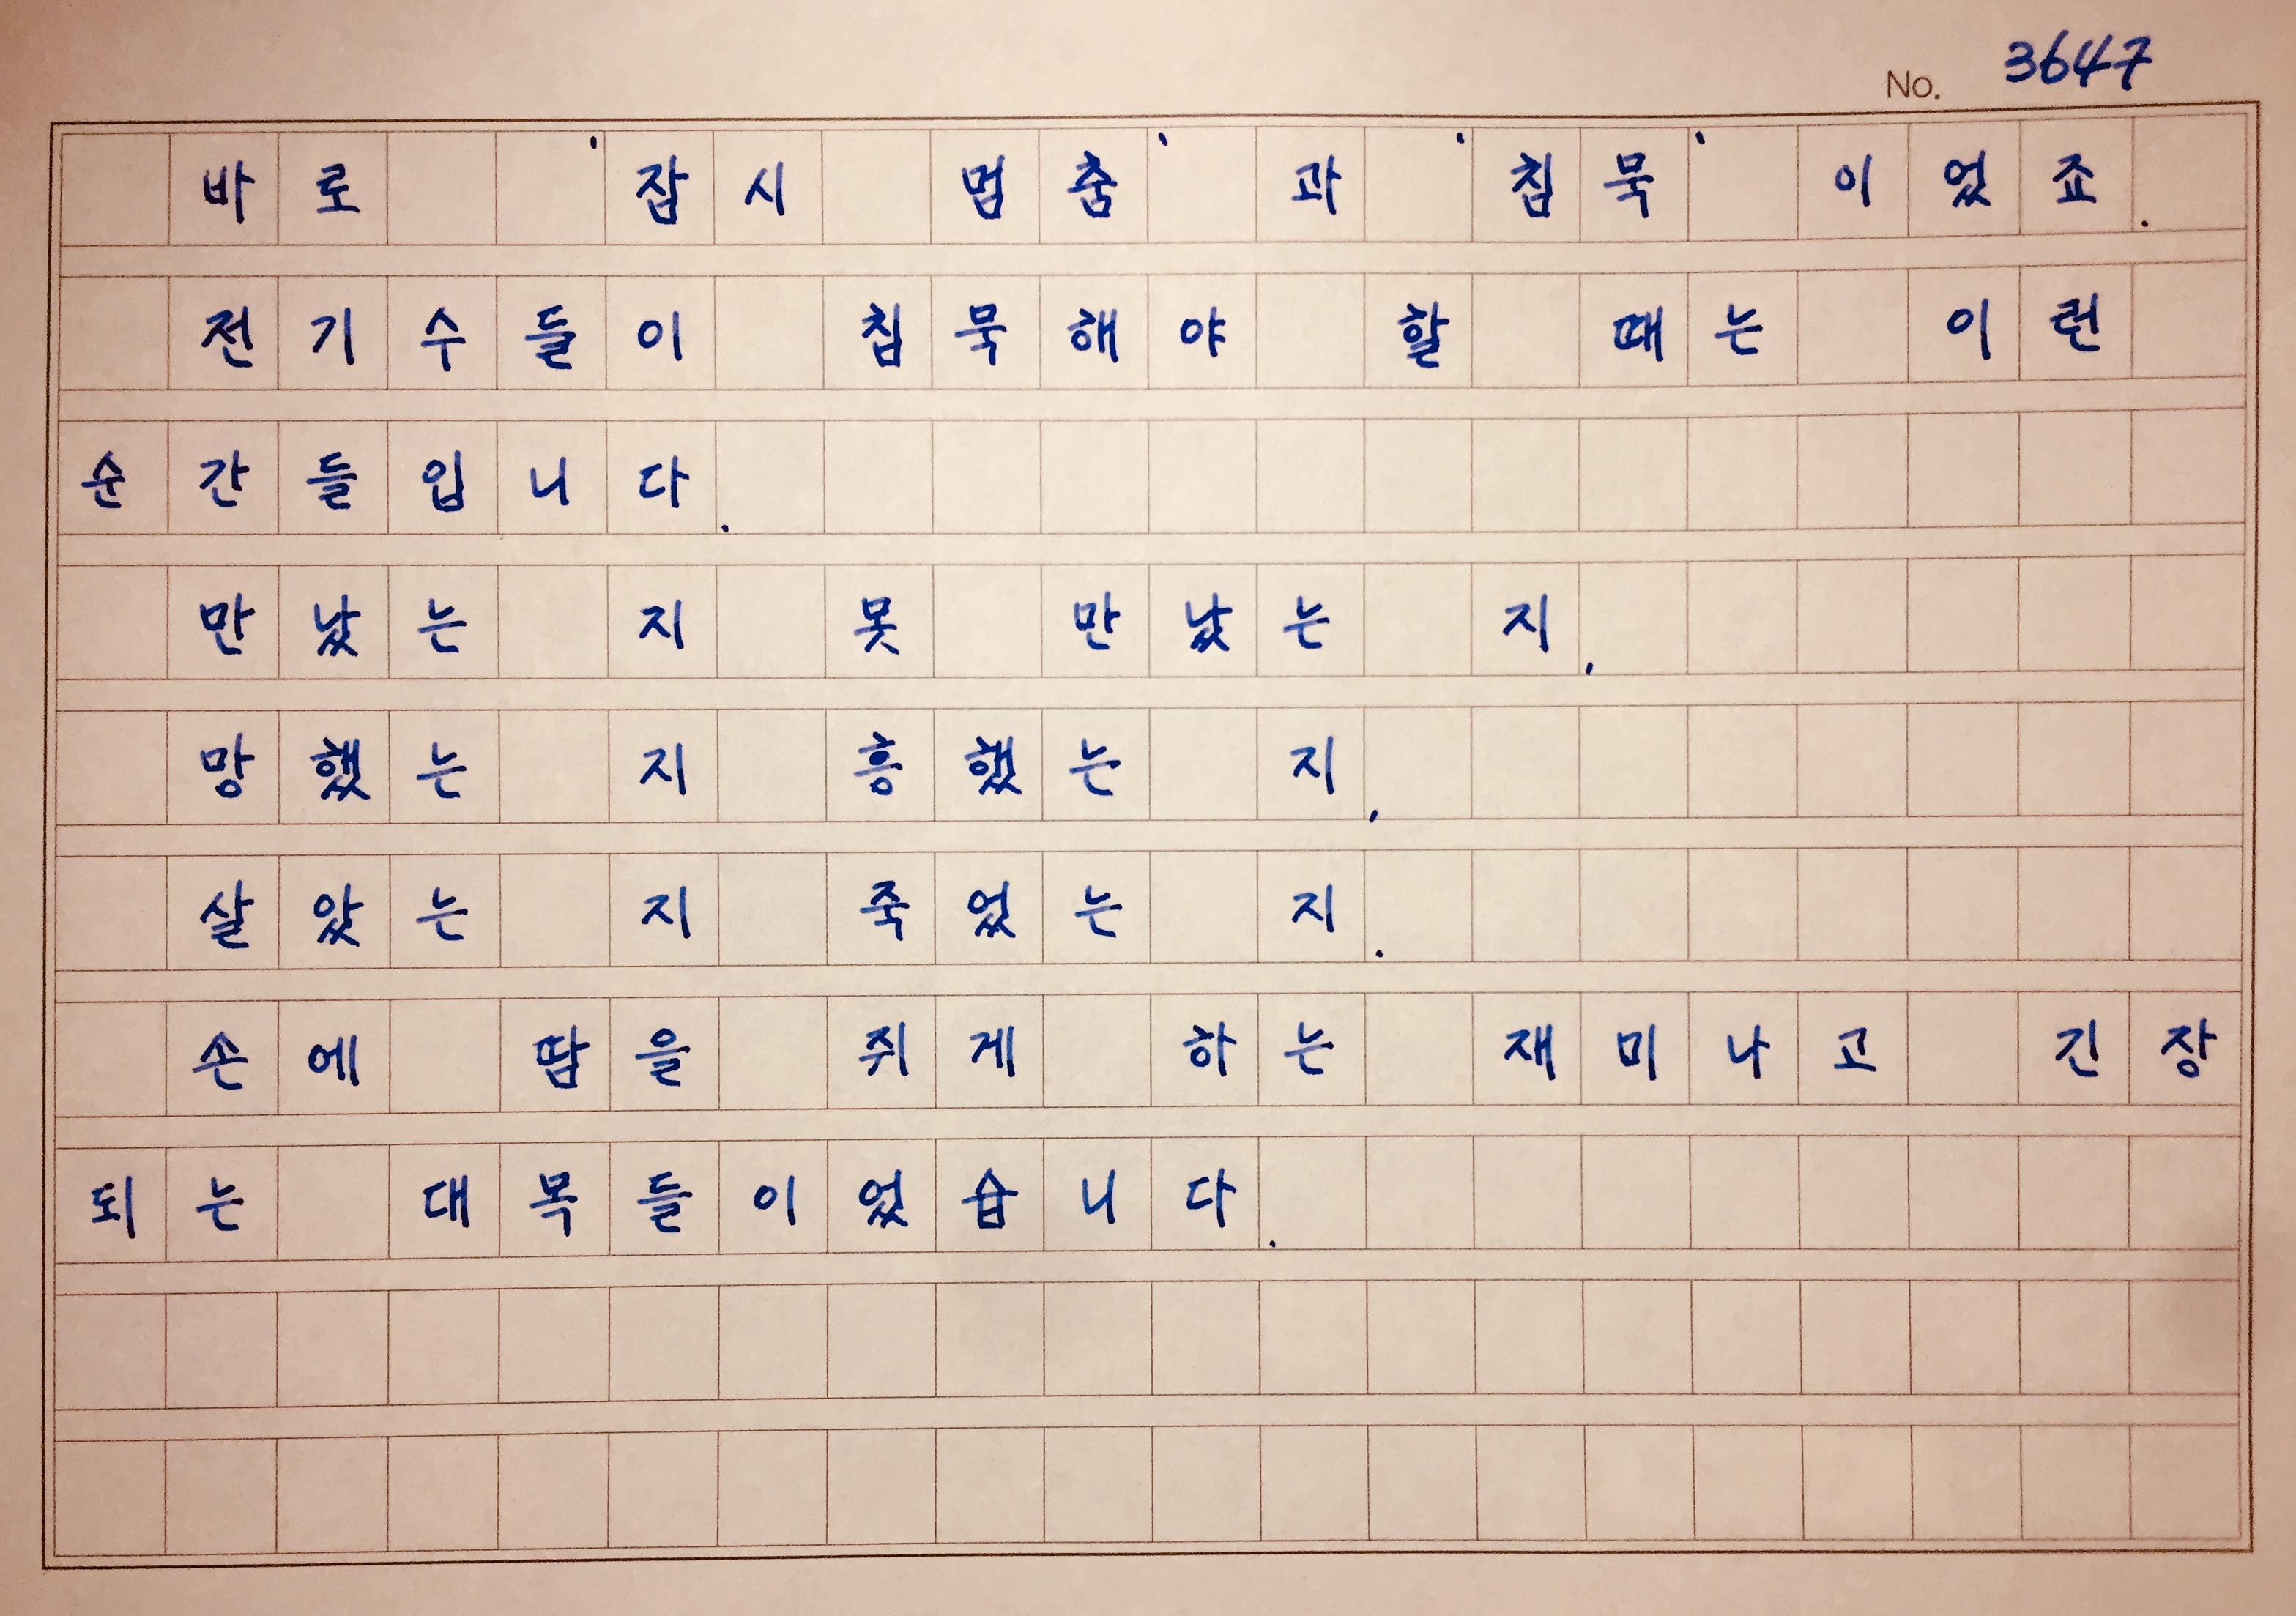 No. 3647
바로 '잠시 멈춤'과 '침묵'이었죠.
전기수들이 침묵해야 할 때는 이런
순간들입니다.
만났는 지 못 만났는 지,
망했는 지 흥했는 지,
살았는 지 죽었는 지.
손에 땀을 쥐게 하는 재미나고 긴장
되는 대목들이었습니다.